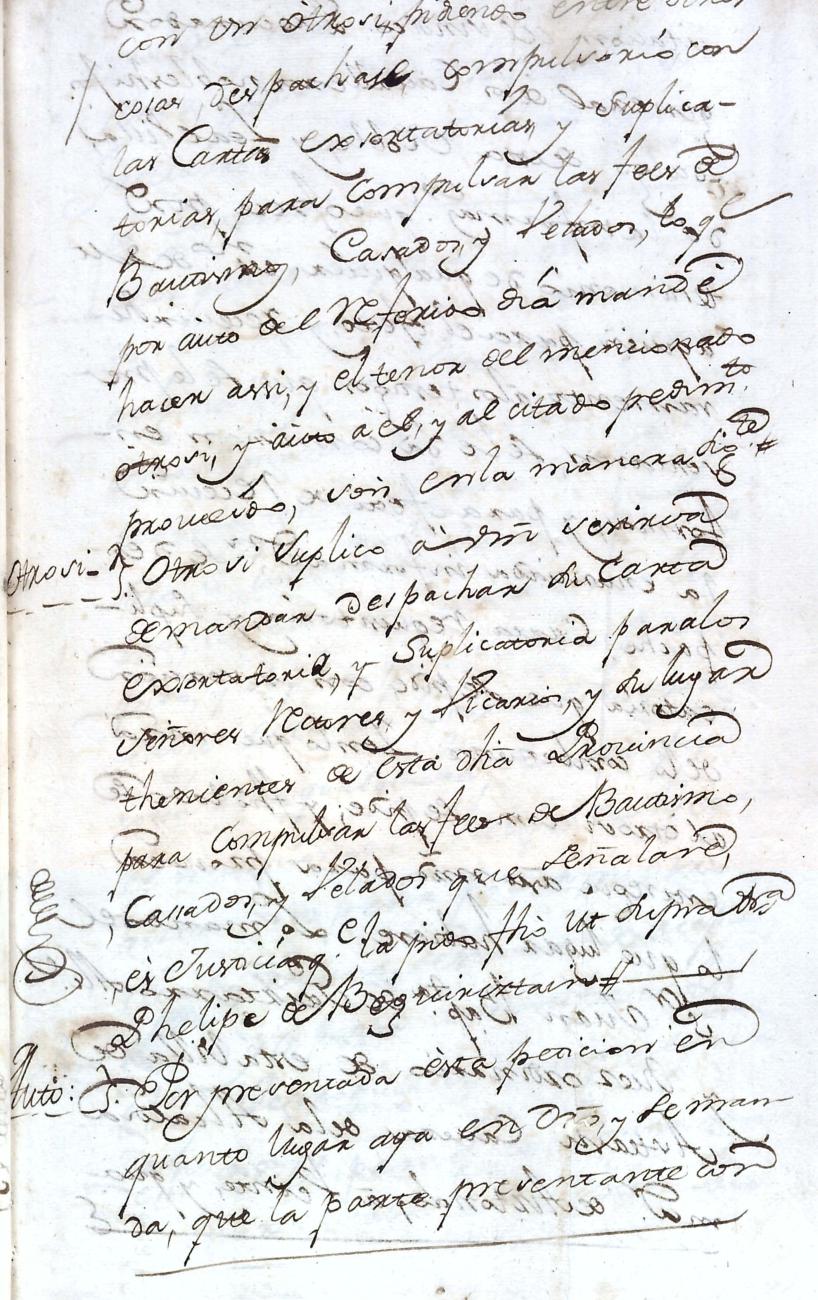 con un otrosi pidiendo entre otras
cosas, despachase compulsorio con
las Cartas exsortatorias, y Suplica-
torias, para compulsar las fees de
Bautismos, Casados, y Velados, lo qe
por auto del referido dia mandè
hacer assi, y el tenor del mencionado
otrosi, y auto â el, y al citado pedimto
proveido, son en la manera sigte #
Otrosi- Otrosi Suplico â Vm se sirva
demandar despachar su Carta
exsortatoria, y Suplicatoria para los
señores Rectores y Vicarios, y su lugar
thenientes de esta dha Provincia
para Compulsar las fees de Bautismo,
Cassados, y Velados que señalare,
es Justicia q. e la pido fho ut supra
Phelipe de Beguiristain #
Auto: Por presentada esta peticion en
quanto lugar aya en Dro, y se man-
da, que la parte presentante con